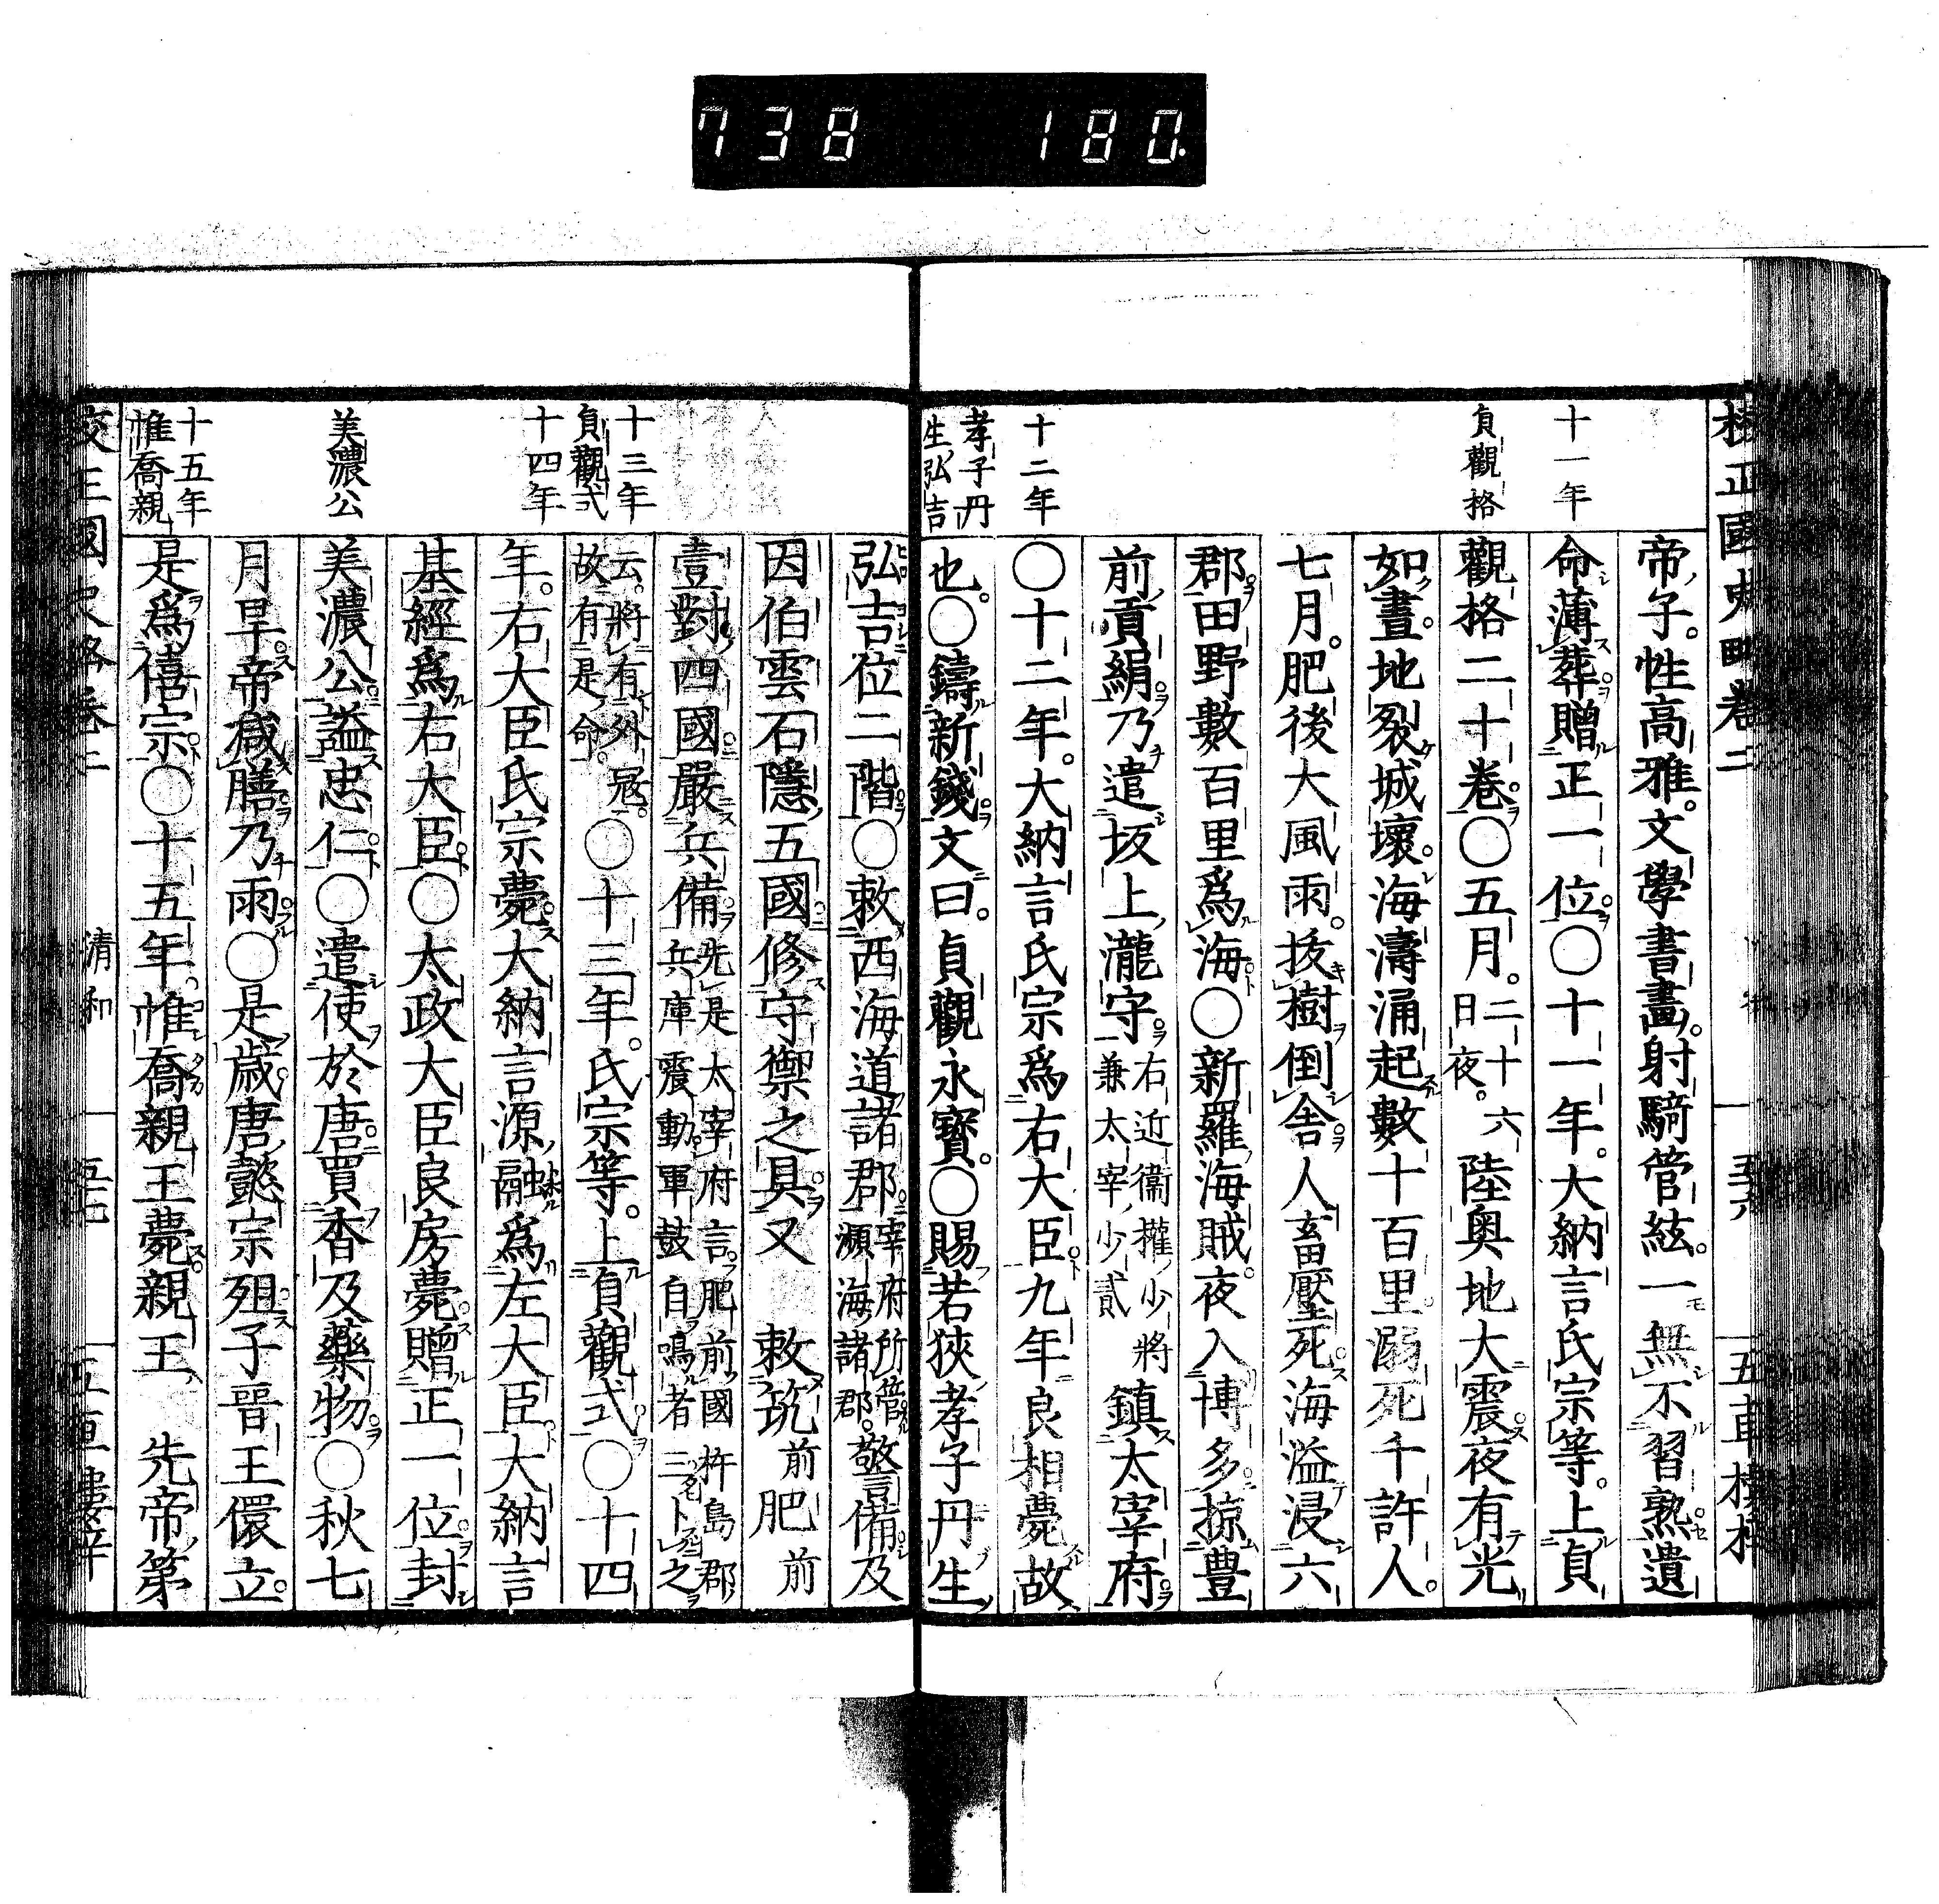 738 180.
校正國史略卷二
十一年
貞觀格
十二年
孝子丹
生弘吉
帝子。性高雅。文學書畫。射騎管絃。一無不習熟遺
命薄葬贈正一位〇十一年。大納言氏宗等。上貞
觀格二十卷〇五月。二十六日夜。陸奧地大震夜有光
如晝。地裂城壞。海濤涌起數十百里。溺死千許人。
七月。肥後大風雨。拔樹倒舍人畜壓死海溢浸六
郡田野數百里爲海〇新羅海賊。夜入博多掠豊
前貢絹乃遣坂上瀧守右近衞權少將兼太宰少貳鎮太宰府
〇十二年。大納言氏宗爲右大臣九年良相薨故
也。〇鑄新錢文曰。貞觀永寳。〇賜若狹孝子丹生
弘吉位二階〇敕西海道諸郡宰府所管瀕海諸郡。警備及
因伯雲石隱五國修守禦之具又 敕筑前肥前
壹對四國嚴兵備先是太宰府言肥前國杵島郡兵庫震動軍鼓自鳴者三名卜之
云。將有外冦。故有是命。〇十三年。氏宗等。上貞觀式〇十四
年。右大臣氏宗薨大納言源融爲左大臣大納言
基經爲右大臣〇太政大臣良房薨贈正一位封
美濃公謚忠仁〇遣使於唐買香及藥物〇秋七
月旱。帝減膳乃雨〇是歳唐懿宗殂子晋王儇立。
是爲僖宗〇十五年。惟喬親王薨。親王 先帝第
十三年
貞觀式
十四年
美濃公
十五年
惟喬親
清和
五七